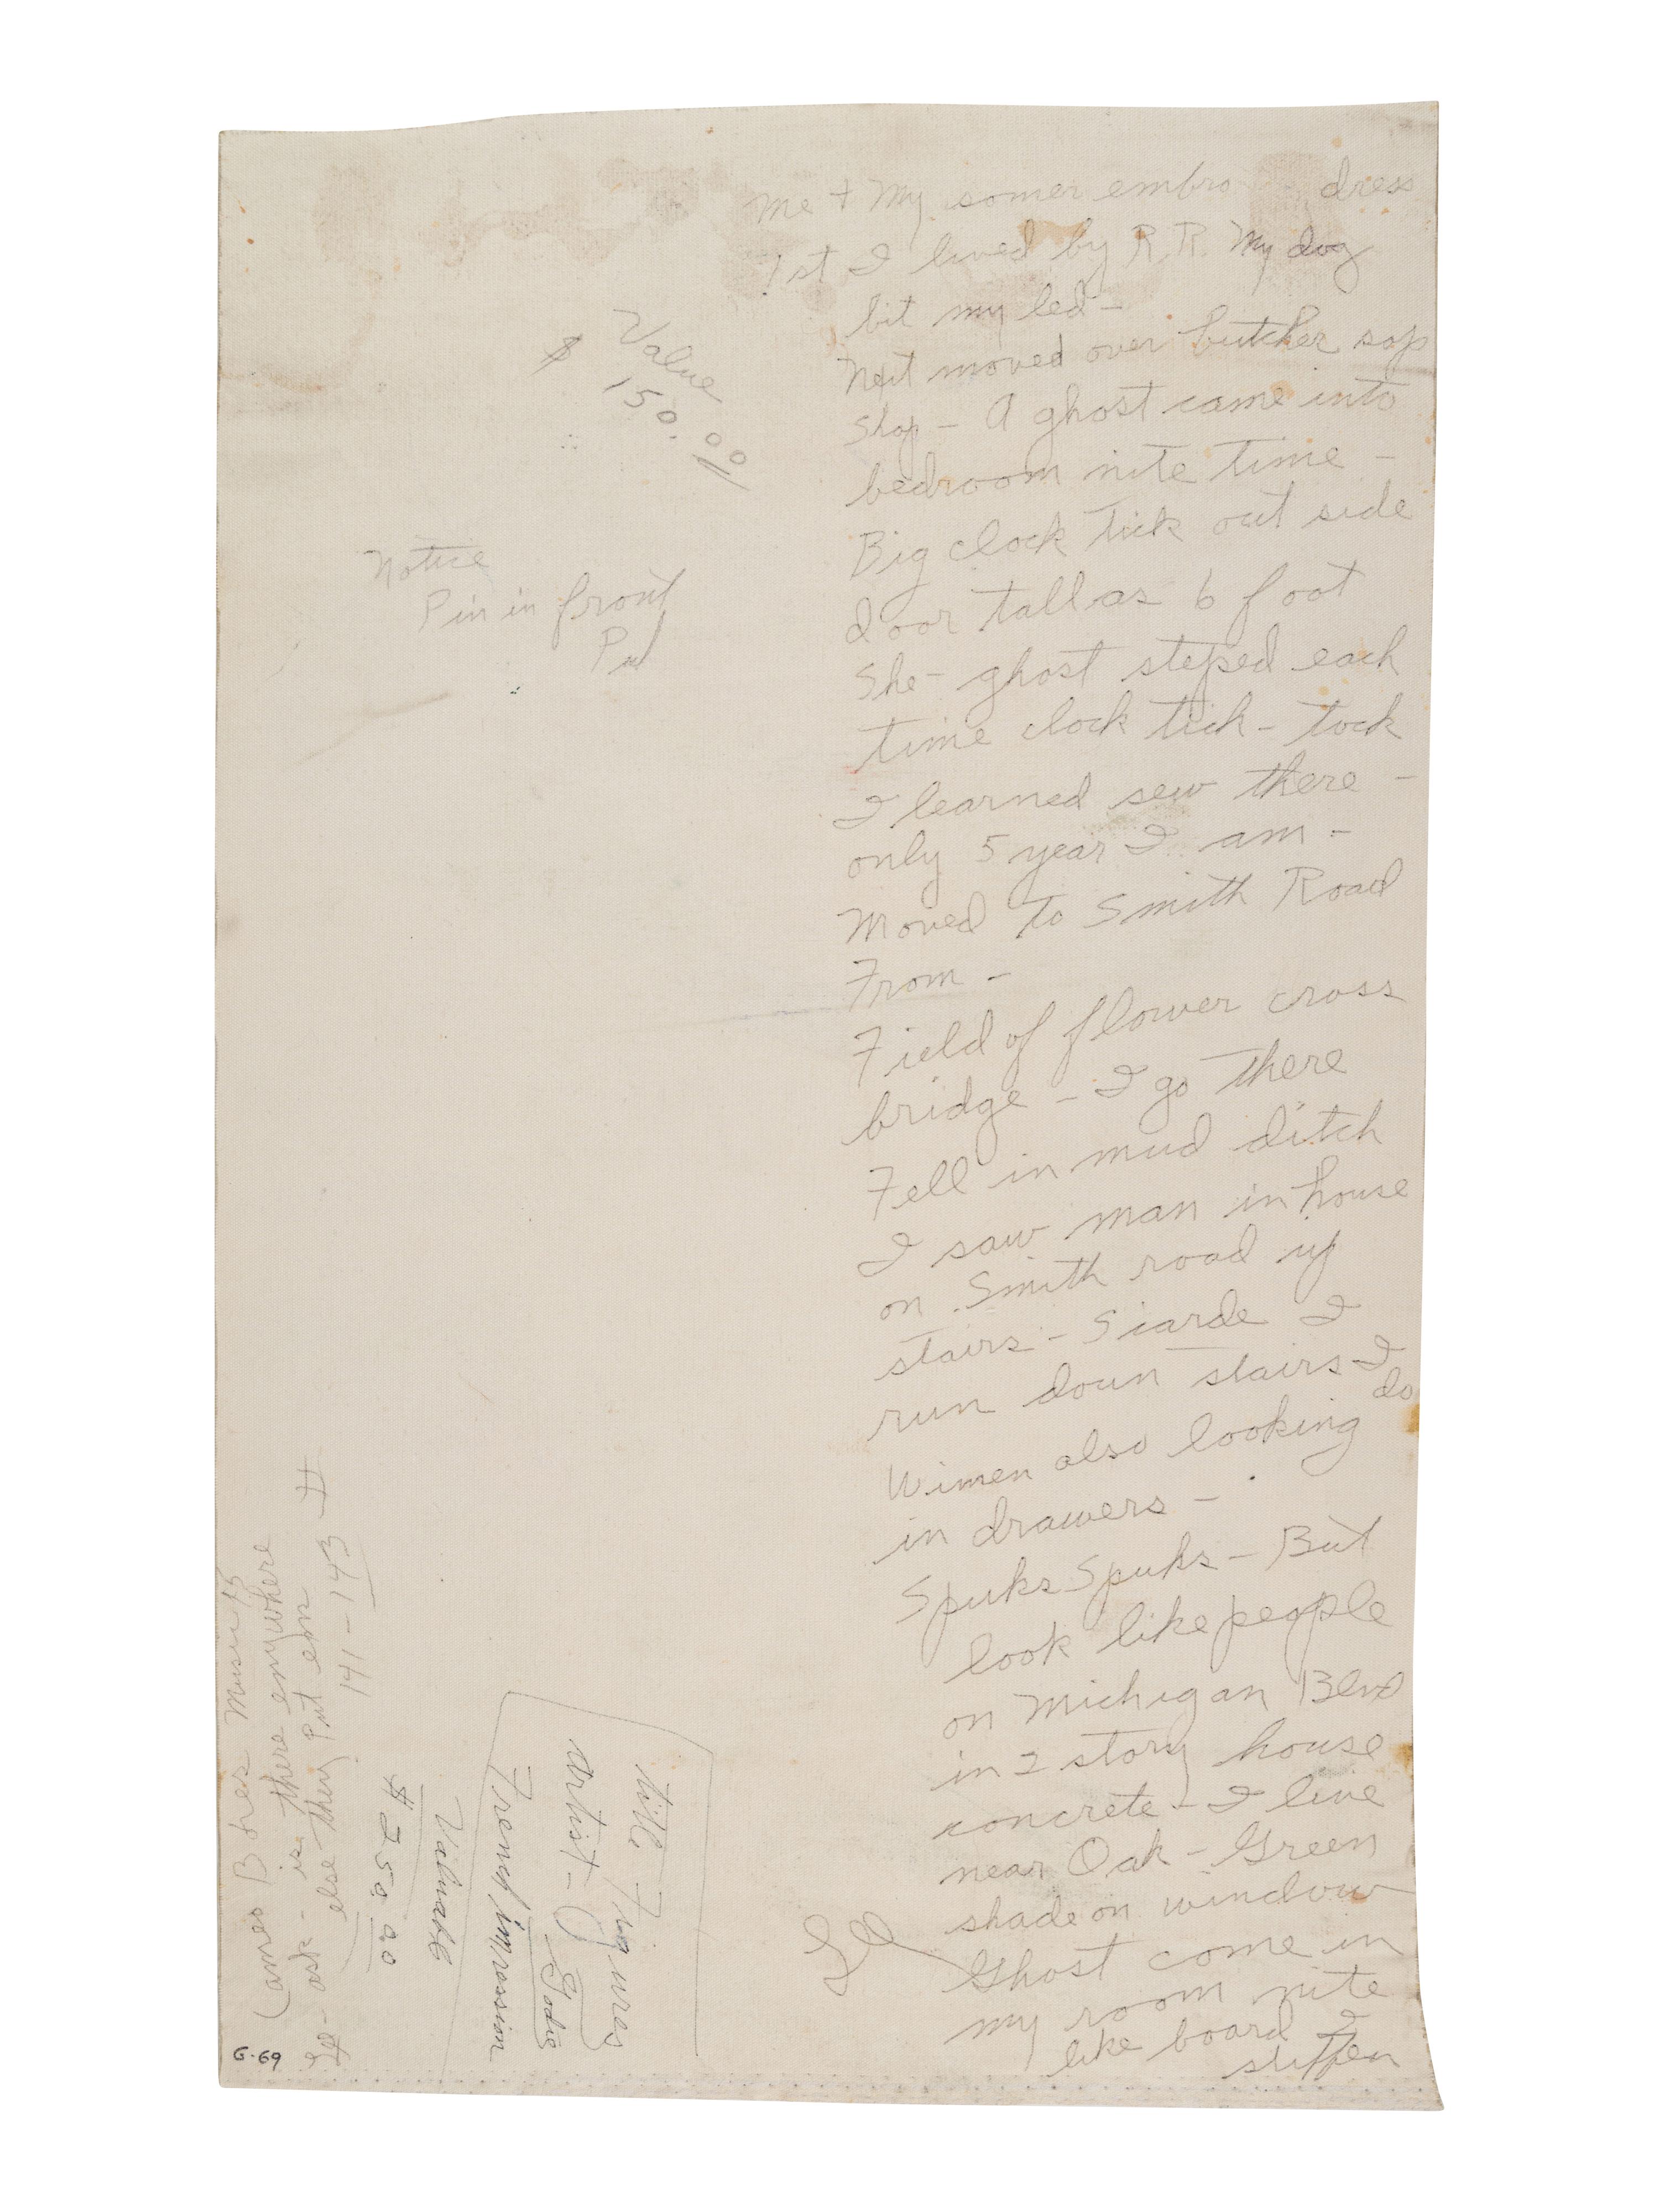 Me + My somer embro dress
1st I lived by R.R. My dog
bit my led -
Next moved over butcher sop
Shop - A ghost came into
bedroom nite time -
Big clock tick out side
door tall as 6 foot
She - ghost steped each
time clock tick - tock
I learned sew there -
only 5 year I am -
Moved to Smith Road
From -
Field of flower cross
bridge - I go there
Fell in mud ditch
I saw man in house
on Smith road up
stairs - Siarde I
run doun stairs - I
do
Wimen also looking
in drawers -
Spuks Spuks - But
look like people
on Michigan Blvd
in 2 story house
concrete - I live
near Oak - Green
shade on window
Ghost come in
my room nite
like board I
stiffen
Value
$ 150.00
Notice
Pin in front
Pd
title Figures
Artist - Godie
French impression
Valuable
$ 250.00
ask - is there enywhere
else they Put em
141 - 143
G-69